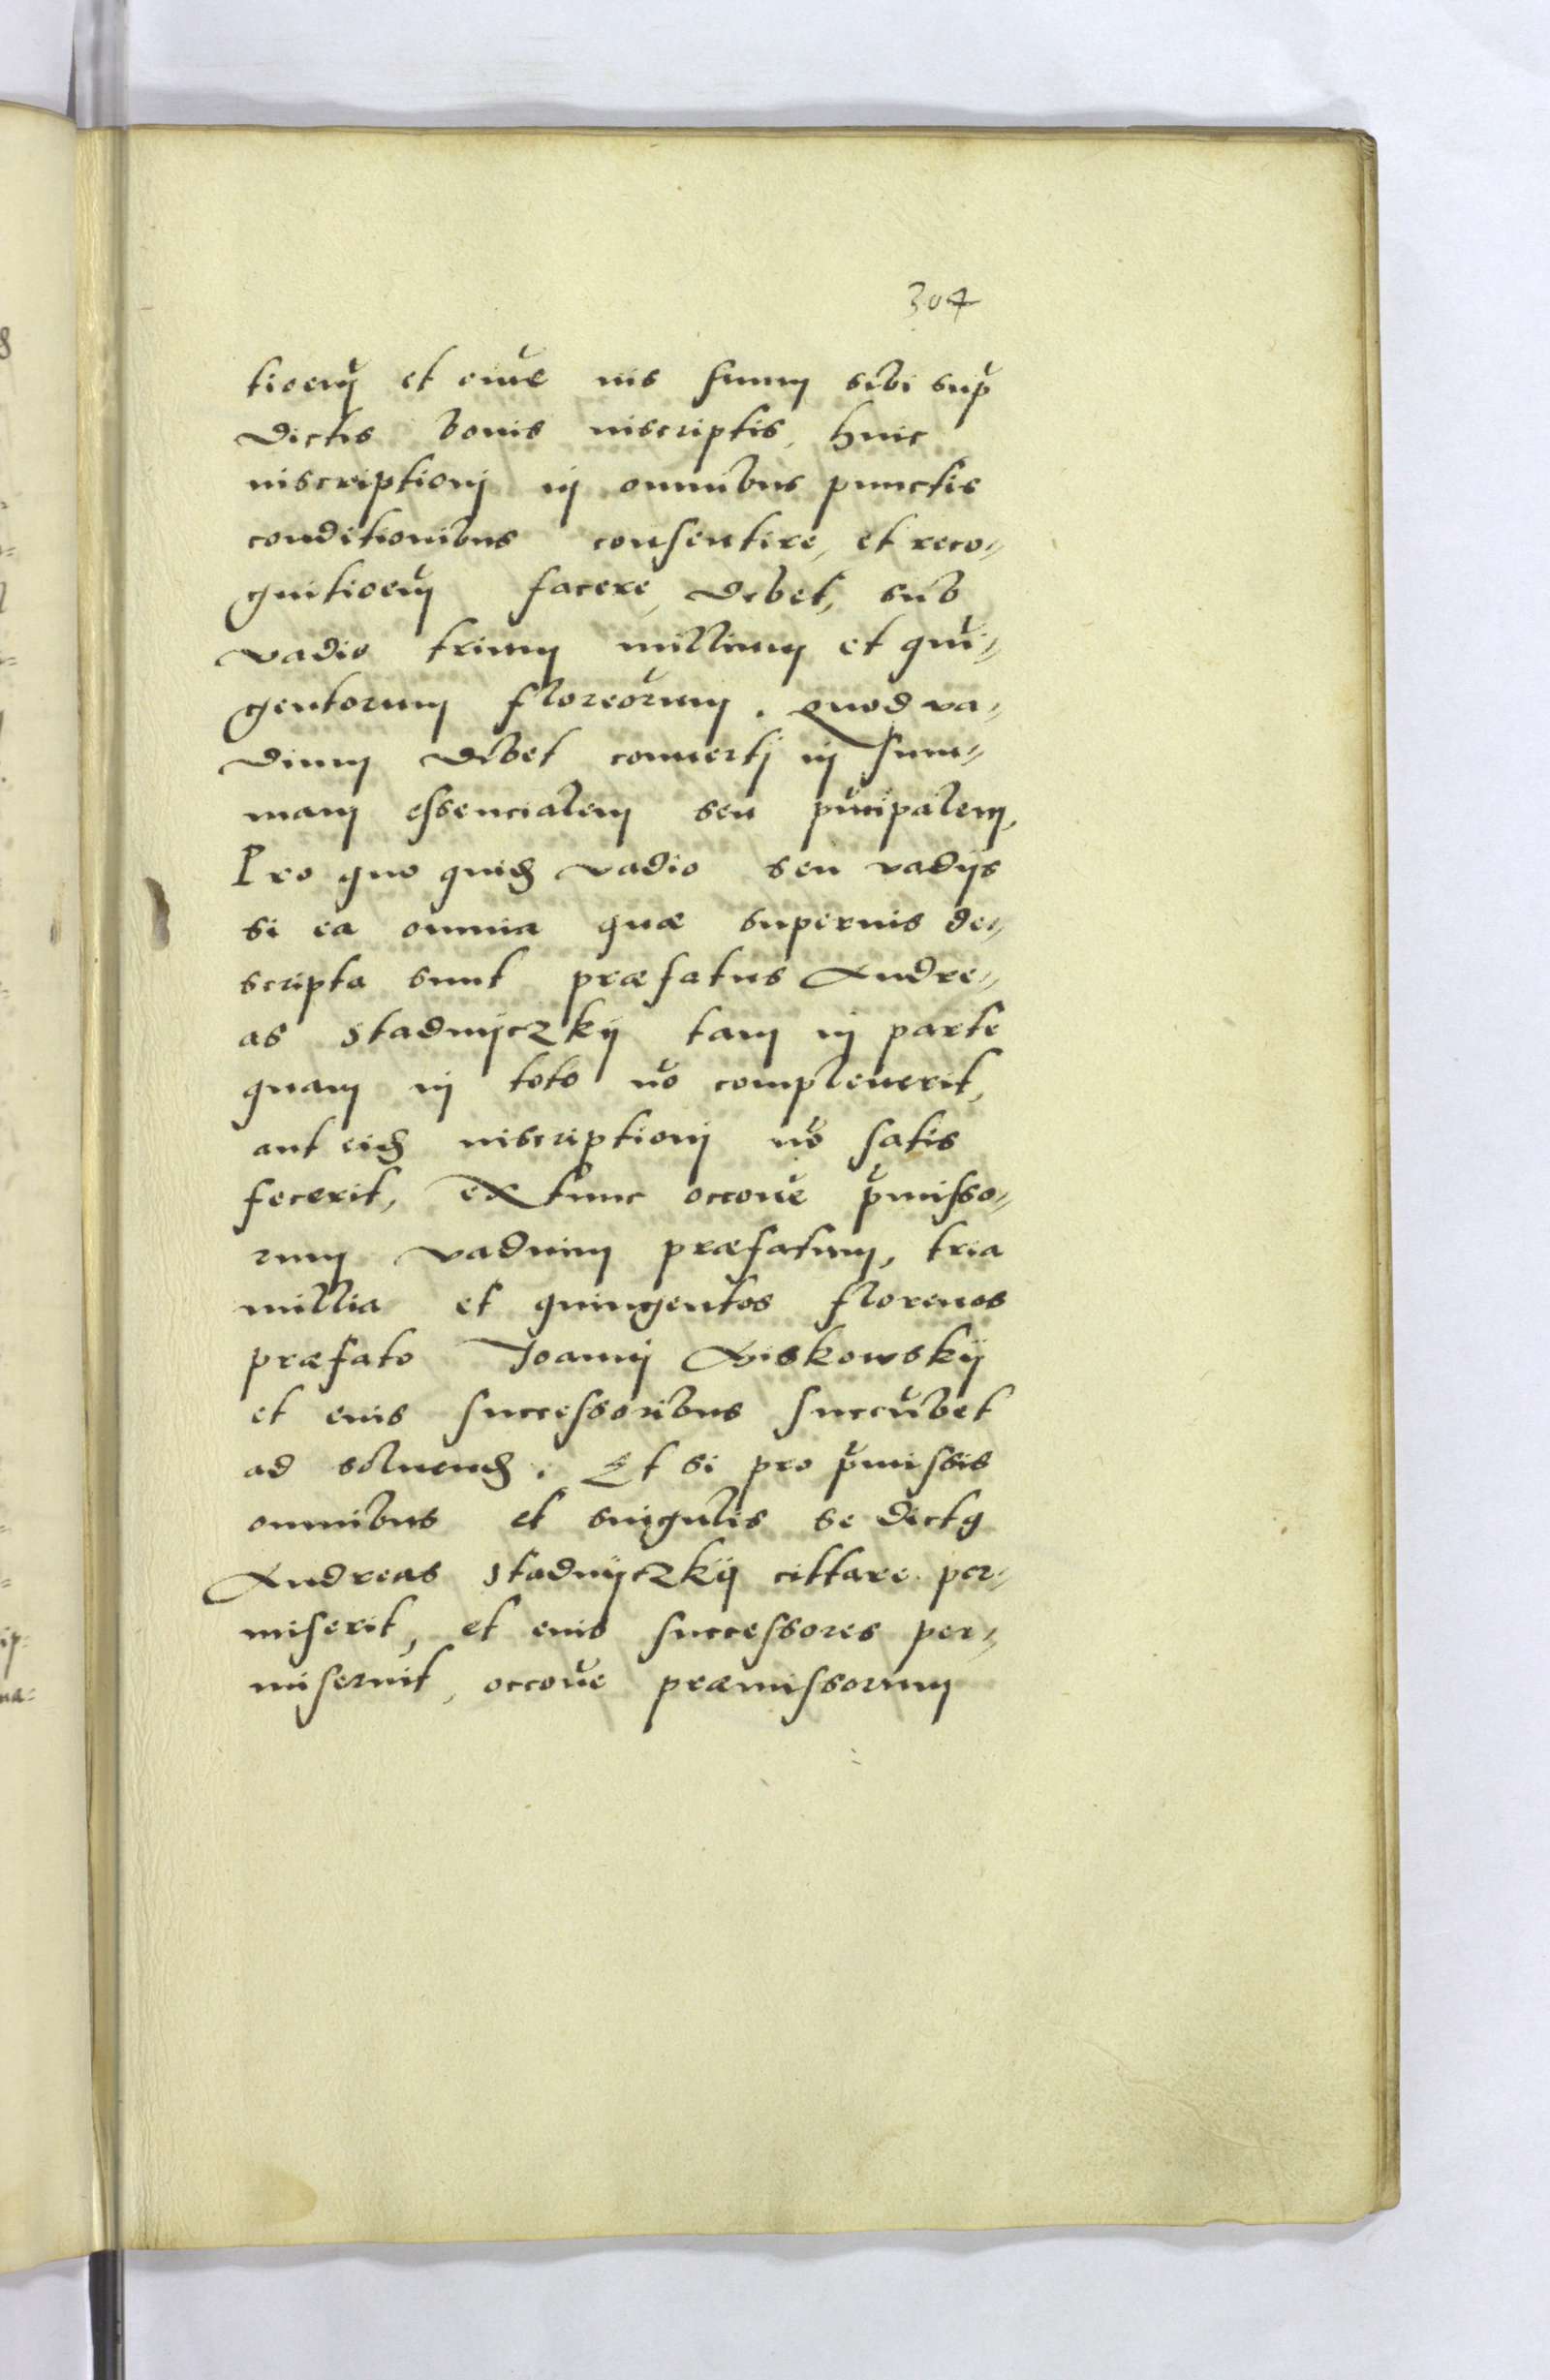 304
tioem et om̄e ius suum sibi sup̄
dictis bonis inscriptis, huic
inscriptionj in omnibus punctis
conditionibus consentire, et reco-
gnitioem̄ facere, debet, sub
vadio trium millium et qui̅-
gentorum floreoru̅m. Quod va-
dium debet conuertj in sum-
mam essencialem seu pri̅cipalem,
Pro quo quid̅ vadio seu vadijs
si ea omnia quæ superius de-
scripta sunt præfatus Andre-
as Stadnÿczkÿ tam in parte
quam in toto no̅ compleuerit,
aut eid̅ inscriptionj no̅ satis
fecerit, extunc occoe̅ p̅misso-
rum vadium præfatum, tria
millia et quingentos florenos
præfato Joannj Liskowskÿ
et euis successoribus succu̅bet
ad soluend̅. Et si pro p̅missis
omnibus et singulis se dictꝰ
Andreas Stadnÿczkÿ cittare per-
miserit, et euis successores per-
miserint, occoe̅ præmissorum